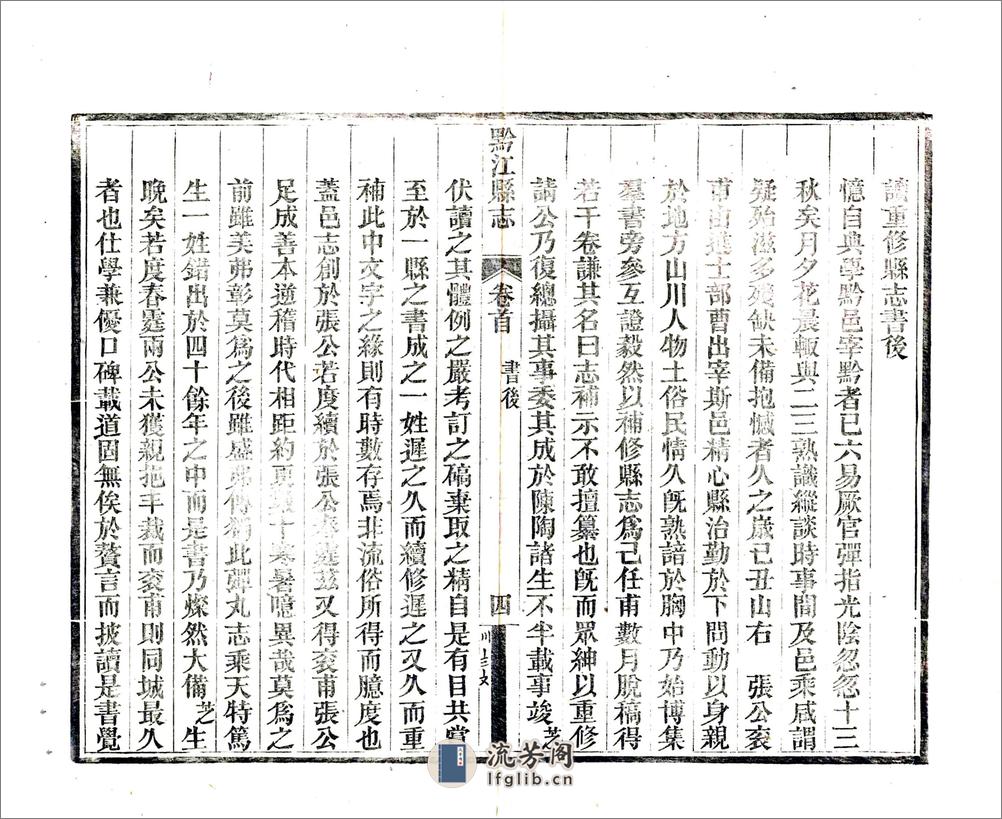 讀重修縣志書後
憶自典學黔邑宰黔者已六易厥官彈指光陰忽忽十三
秋矣月夕花晨輙與二三熟識縱談時事間及邑乘咸謂
疑殆滋多殘缺未備抱憾者久之歲己丑山右 張公衮
甫由進士部曹出宰斯邑精心縣治勤於下問動以身親
於地方山川人物土俗民情久旣熟諳於胸中乃始博集
羣書旁參互證毅然以補修縣志爲己任甫數月脫稿得
若干卷謙其名曰志補示不敢擅纂也旣而眾紳以重修
請公乃復總攝其事委其成於陳陶諸生不半載事竣芝
黔江縣志 卷首 書後 四
伏讀之其體例之嚴考訂之碻棄取之精自是有目共賞
至於一縣之書成之一姓遲之久而續修遲之又久而重
補此中文字之緣則有時數存焉非流俗所得而臆度也
蓋邑志創於張公若度續於張公春霆茲又得衮甫張公
足成善本逆稽時代相距約更數十寒暑噫異哉莫爲之
前雖美弗彰莫爲之後雖盛弗傳獨此彈丸志乘天特篤
生一姓錯出於四十餘年之中而是書乃燦然大備芝生
晚矣若度春霆兩公未獲親挹丰裁而衮甫則同城最久
者也仕學兼優口碑載道固無俟於贅言而披讀是書覺
流芳阁
lfglib.cn